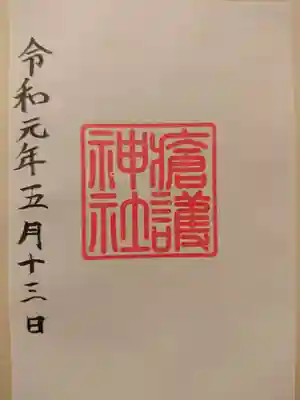 瘡護
神社
令和元年五月十三日